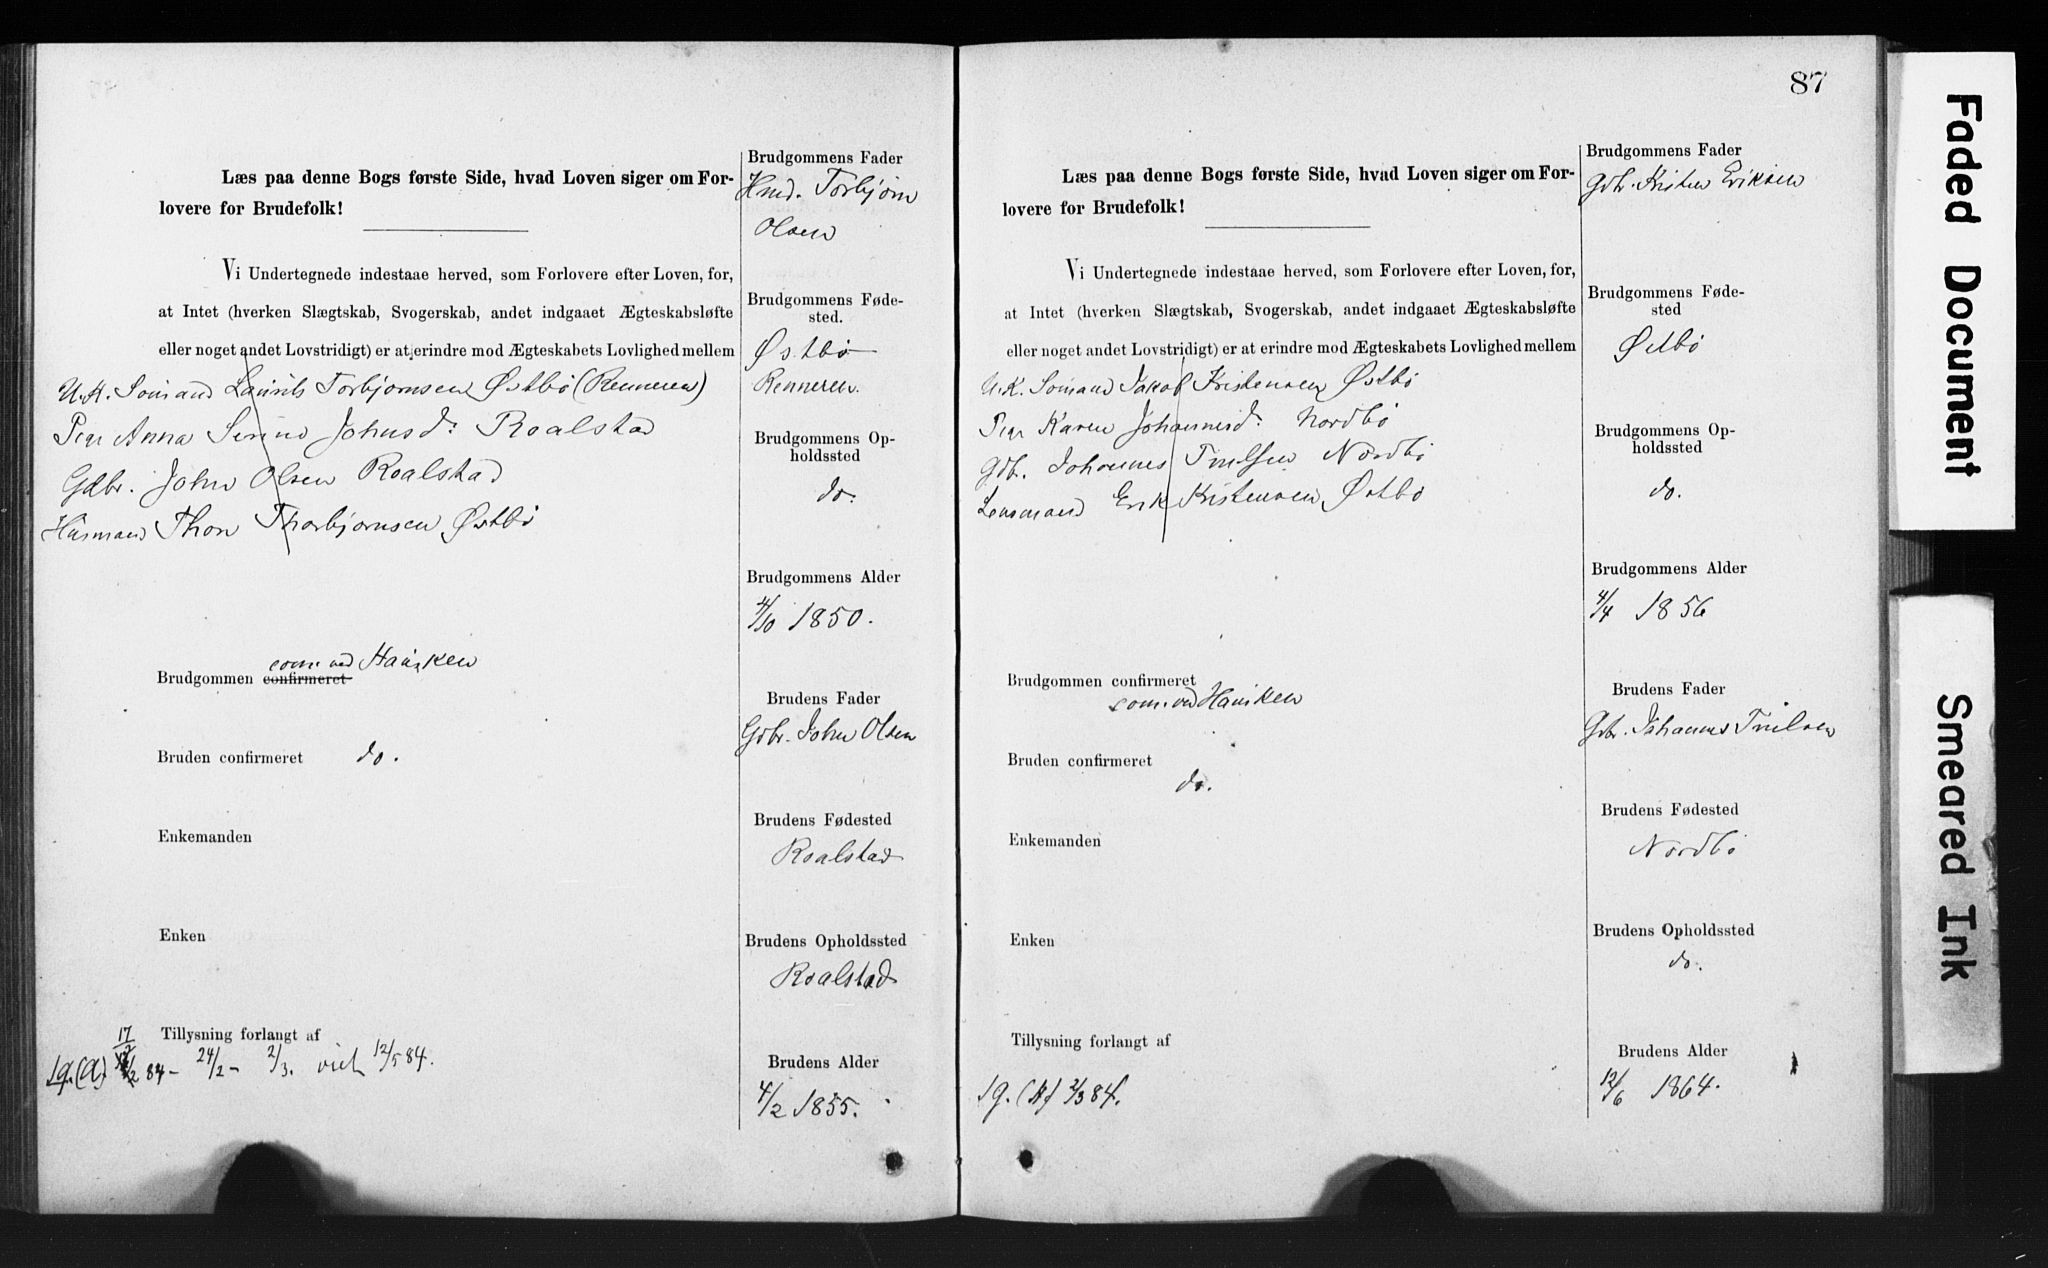 Læs paa denne Bogs første Side, hvad Loven siger om For-
lovere for Brudefolk!
Vi Undertegnede indestaae herved, som Forlovere efter Loven, for,
at Intet (hverken Slægtskab, Svogerskab, andet indgaaet Ægteskabsløfte
eller noget andet Lovstridigt) er at erindre mod Ægteskabets Lovlighed mellem
U.K. Sömand Laurits Torbjørnsen Østbö (Renneren)
Pige Anna Serine Johnsd: Roalstad
Gdbr. John Olsen Roalstad
Husmand Thore Thorbjørnsen Østbö
Brudgommen confirmeret
som ved Hausken
Bruden confirmeret do.
Enkemanden
Enken
Tillysning forlangt af
17/2 84 - 24/2 - 2/3. viet 12/5 84.
Brudgommens Fader
Hmd. Torbjørn
Olsen
Brudgommens Føde-
sted.
Østbö
Renneren.
Brudgommens Op-
holdssted
do.
Brudgommens Alder
4/10 1850.
Brudens Fader
Gdbr. John Olsen
Brudens Fødested
Roalstad
Brudens Opholdssted
Roalstad
Brudens Alder
4/2 1855.
87
Læs paa denne Bogs første Side, hvad Loven siger om For-
lovere for Brudefolk!
Vi Undertegnede indestaae herved, som Forlovere efter Loven, for,
at Intet (hverken Slægtskab, Svogerskab, andet indgaaet Ægteskabsløfte
eller noget andet Lovstridigt) er at erindre mod Ægteskabets Lovlighed mellem
U.K. Sömand Jakob Kristensen Østbö
Pige Karen Johannesd: Nordbö
Gdbr. Johannes Nordbö
Lensmand Erik Kristensen Østbö
Brudgommen confirmeret
som ved Hausken
Bruden confirmeret
do.
Enkemanden
Enken
Tillysning forlangt af
1g. (K) 2/3 84.
Brudgommens Fader
Gdbr. Kristen Eriksen
Brudgommens Føde-
sted
Østbö
Brudgommens Op-
holdssted
do.
Brudgommens Alder
4/4 1856
Brudens Fader
Gdbr. Johannes
Brudens Fødested
Nordbö
Brudens Opholdssted
do.
Brudens Alder
12/6 1864.
Faded Document
Smeared Ink